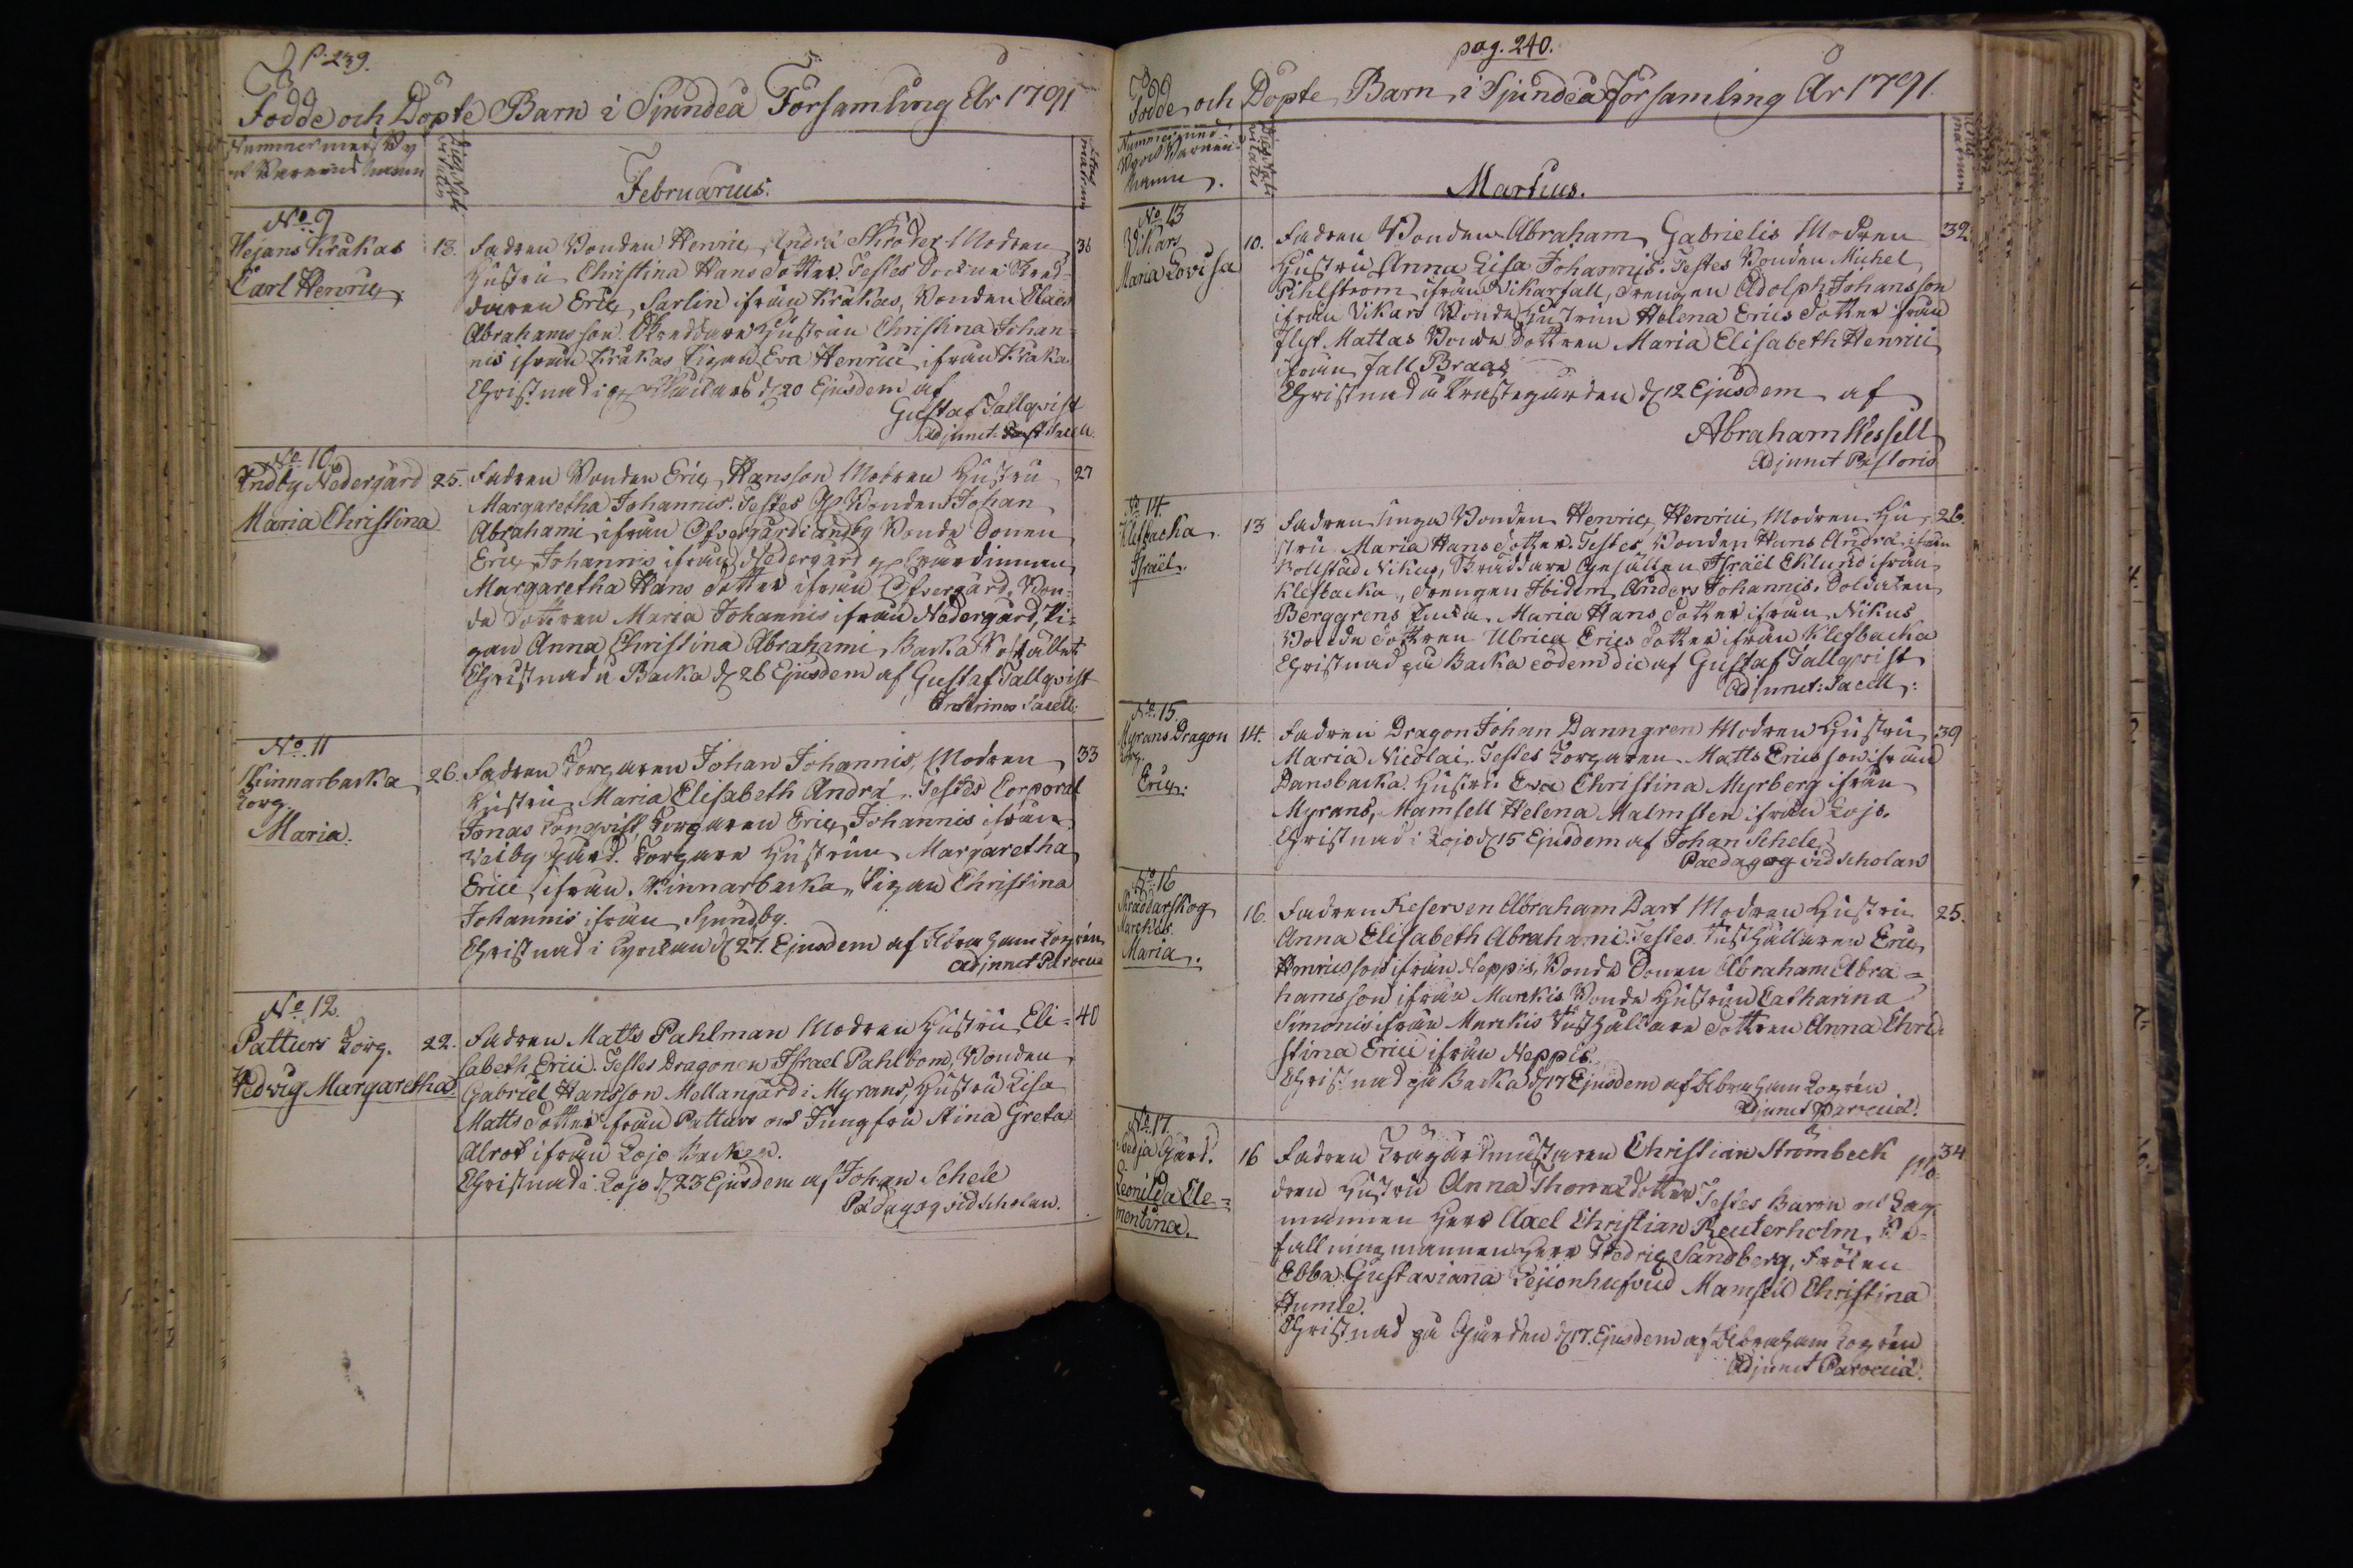 p. 239.
Födde och Döpte Barn i Sjundeå Församling År 1791
Nummer med By
och Barnens namn
Dies Nati
vitatis
Februarius.
Ætas
matrum
No. 9
Hejans Kråkas
Carl Henric
18.
Fadren Bonden Henric Andræ Skröder Modren
36
Hustru Christina Hans dotter. Testes
daren Eric Sarlin ifrån Kråkas, Bonden Claes
Abrahamsson Skreddare Hustrun Christina Johan-
nis ifrån Kråkas Pigan Eva Henrici ifrån Kråkas
Christnad i d 20 Ejusdem af
Gustaf Tallqvist
Adjunct. Sacell.
No. 10
Andby Nedergård
Maria Christina
25.
Fadren Bonden Eric Hansson Modren Hustru
27
Margaretha Johannis. Testes Bonden Johan
Abrahami ifrån Ofvergård i Andby Bonde Sonen
Eric Johannis ifrån Nedergård
Margaretha Hans dotter ifrån Ofvergård, Bon-
de dottren Maria Johannis ifrån Nedergård, Pi-
gan Anna Christina Abrahami, Backa
Christnad å Backa d 26 Ejusdem af Gustaf Tallqvist
Sacell.
No. 11
Kinnarbacka
Torp.
Maria.
26.
Fadren Torparen Johan Johannis, Modren
33
Hustru Maria Elisabeth Andræ. Testes Corporal
Jonas Lönqvist, Torparen Eric Johannis ifrån
Veiby Gård. Torpare Hustrun Margaretha
Erici ifrån Kinnarbacka, Pigan Christina
Johannis ifrån Sjundby.
Christnad i Kyrckan d 27. Ejusdem af Abraham Logrén
Adjunct Paroeciæ
No. 12.
Patturs Torp.
Hedvig Margaretha.
22.
Fadren Matts Pahlman Modren Hustru Eli-
40
sabeth Erici. Testes Dragonen Israel Pahlbom, Bonden
Gabriel Hansson Mellangård i Myrans, Hustru Lisa
Matts dotter ifrån Patturs och Jungfru Stina Greta
Alrot ifrån Lojo Backen.
Christnad i Lojo d 23 Ejusdem af Johan Schele
Pædagog vid Scholan.
pag. 240.
Födde och Döpte Barn i Sjundeå Församling År 1791.
Nummer med
By och Barnens
Namn.
Dies Nati
vitatis
Martius.
Ætas
matrum
No. 13
Vikars
Maria Lovisa
10.
Fadren Bonden Abraham Gabrielis Modren
32.
Hustru Anna Lisa Johannis. Testes Bonden Michel
Pihlström ifrån Vikarfall, Drengen Adolph Johansson
ifrån Vikars Bonde Hustrun Helena Erics dotter ifrån
Mattas Bonde Dottren Maria Elisabeth Henrici
ifrån Fall Braas
Christnad å Prästegården d 12 Ejusdem af
Abraham Wessell
Adjunct Pastoris
No. 14.
Klefbacka
Israël.
13
Fadren Unga Bonden Henric Henrici, Modren Hu-
26.
stru Maria Hans dotter. Testes, Bonden Hans Andræ ifrån
Bollstad Nikus, Skräddare Gesällen Israël Eklund ifrån
Klefbacka, Drengen Ibidem Anders Johannis, Soldaten
Berggrens Enka Maria Hans dotter ifrån Nikus
Bonde dottren Ulrica Erics dotter ifrån Klefbacka
Christnad på Backa eodem die af Gustaf Tallqvist
Adjunct: Sacell:
No. 15.
Myrans Dragon
Torp.
Eric.
14.
Fadren Dragon Johan Danngren Modren Hustru
39
Maria Nicolai, Testes Torparen Matts Ericsson ifrån
Dansbacka. Hustru Eva Christina Myrberg ifrån
Myrans, Mamsell Helena Malmsten ifrån Lojo.
Christnad i Lojo d 15 Ejusdem af Johan Schele
Paedagog vid Scholan
No. 16
Skräddarskog
Marckis.
Maria.
16.
Fadren Reserven Abraham Dart Modren Hustru
25.
Anna Elisabeth Abrahami. Testes Rusthållaren Eric
Henricsson ifrån Neppis, Bonde Sonen Abraham Abra-
hamsson ifrån Marckis Bonde Hustrun Catharina
Simonis ifrån Marckis Rusthållare dottren Anna Chri-
stina Erici ifrån Neppis.
Christnad på Backa d 17 Ejusdem af Abraham Logrén
Adjunct Paroeciæ.
No. 17.
Svedja Gård.
Leonilda Cle-
mentina.
16
Fadren Trägårdmästaren Christian Strömbeck Mo-
34
dren Hustru Anna Thomædotter Testes Baron och Lag-
mannen Herr Axel Christian Reuterholm, Be-
fallningmannen Herr Fredric Sandberg, Fröken
Ebba Gustaviana Lejionhufvud Mamsell Christina
Humle.
Christnad på Gården d 17. Ejusdem af Abraham Logrén
Adjunct Paroeciæ.